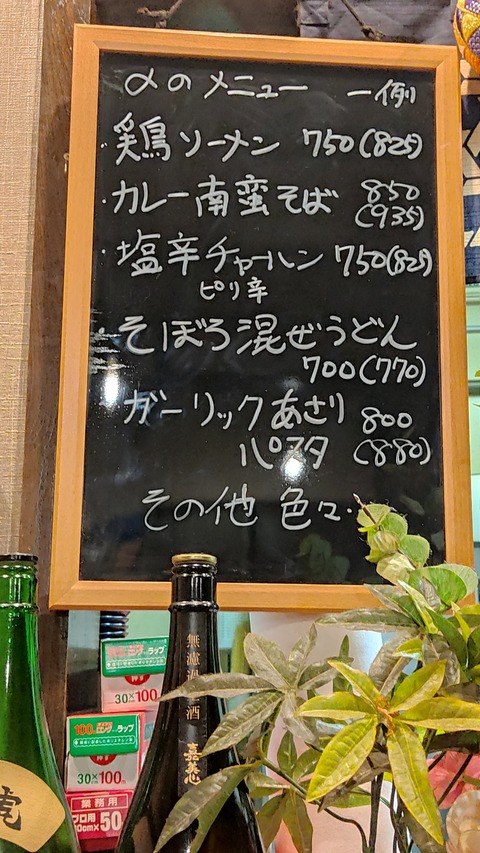 〆のメニュー 一例
・鶏ソーメン 750(825)
・カレー南蛮そば 850
(935)
・塩辛チャーハン 750(825)
ピリ辛
・そぼろ混ぜうどん
700(770)
・ガーリックあさり 800
パスタ (880)
その他 色々・
無濾過
酒
嘉美心
ラップ
30×100
100
ラップ
30×100
業務用
プロ用
50
虎